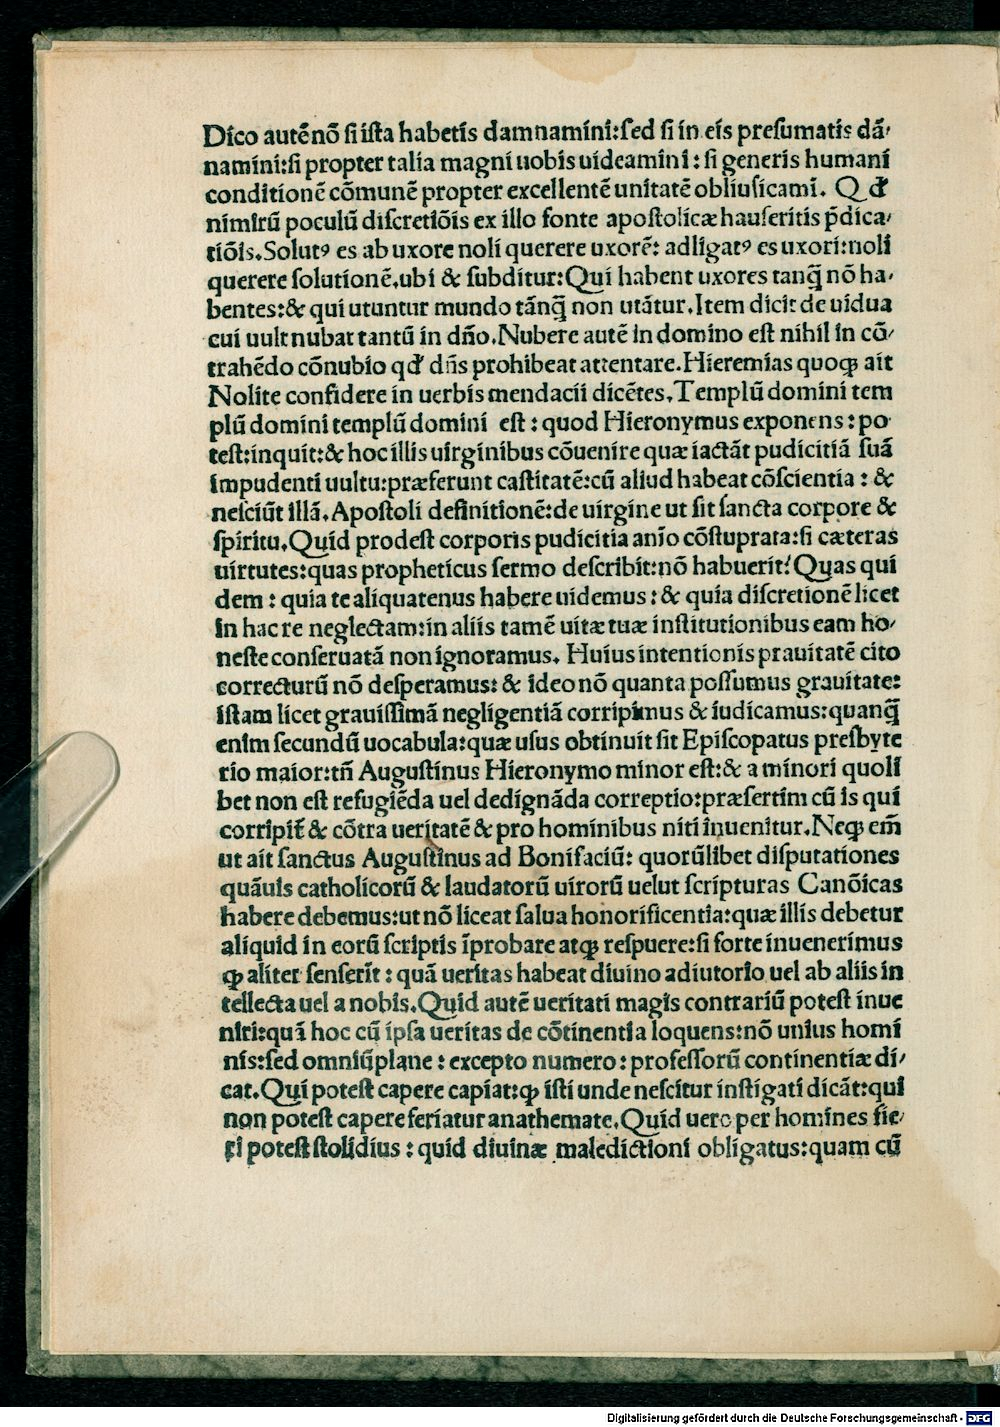 Dico autē nō ſi iſta habetis damnamini:ſed ſi in eis preſumatis dā-
namini:ſi propter talia magni uobis uideamini : ſi generis humani
conditionē cōmunē propter excellentē unitatē obliuſicami. Q ꝺ̃
nimirū poculū diſcretiōis ex illo fonte apoſtolicæ hauſeritis p̄dica-
tiōis.Solutꝰ es ab uxore noli querere uxorē: adligatꝰ es uxori:noli
querere ſolutionē.ubi & ſubditur:Qui habent uxores tanq̄ nō ha-
bentes:& qui utuntur mundo tānq̄ non utātur.Item dicit de uidua
cui uult nubat tantū in dño.Nubere autē in domino eſt nihil in cō-
trahēdo cōnubio qꝺ̃ dñs prohibeat attentare.Hieremias quoqꝫ ait
Nolite confidere in uerbis mendacii dicētes.Templū domini tem
plū domini templū domini eſt : quod Hieronymus exponens : po
teſt:inquit:& hoc illis uirginibus cōuenire quæ iactāt pudicitiā ſuā
impudenti uultu:præferunt caſtitatē:cū aliud habeat cōſcientia : &
neſciūt illā.Apoſtoli definitionē:de uirgine ut ſit ſancta corpore &
ſpiritu.Quid prodeſt corporis pudicitia anīo cōſtuprata:ſi cæteras
uirtutes:quas propheticus ſermo deſcribit:nō habuerit? Quas qui
dem : quia te aliquatenus habere uidemus : & quia diſcretionē licet
in hac re neglectam:in aliis tamē uitæ tuæ inſtitutionibus eam ho-
neſte conſeruatā non ignoramus. Huius intentionis prauitatē cito
correcturū nō deſperamus: & ideo nō quanta poſſumus grauitate:
iſtam licet grauiſſimā negligentiā corripimus & iudicamus:quanq̄
enim ſecundū uocabula:quæ uſus obtinuit ſit Epiſcopatus presbyte
rio maior:tñ Auguſtinus Hieronymo minor eſt:& a minori quoli
bet non eſt refugiēda uel dedignāda correptio:præſertim cū is qui
corripit̃ & cōtra ueritatē & pro hominibus niti inuenitur.Neqꝫ em̄
ut ait ſanctus Auguſtinus ad Bonifaciū: quorūlibet diſputationes
quāuis catholicorū & laudatorū uirorū uelut ſcripturas Canōicas
habere debemus:ut nō liceat ſalua honorificentia:quæ illis debetur
aliquid in eorū ſcriptis īprobare atqꝫ reſpuere:ſi forte inuenerimus
ꝙ aliter ſenſerit : quā ueritas habeat diuino adiutorio uel ab aliis in
tellecta uel a nobis.Quid autē ueritati magis contrariū poteſt inue
niri:quā hoc cū ipſa ueritas de cōtinentia loquens:nō unius homi
nis:ſed omniū plane : excepto numero : profeſſorū continentiæ di-
cat.Qui poteſt capere capiat:ꝙ iſti unde neſcitur inſtigati dicāt:qui
non poteſt capere feriatur anathemate.Quid uero per homines fie-
ri poteſt ſtolidius : quid diuinæ maledictioni obligatus:quam cū
Digitalisierung gefördert durch die Deutsche Forschungsgemeinschaft - DFG